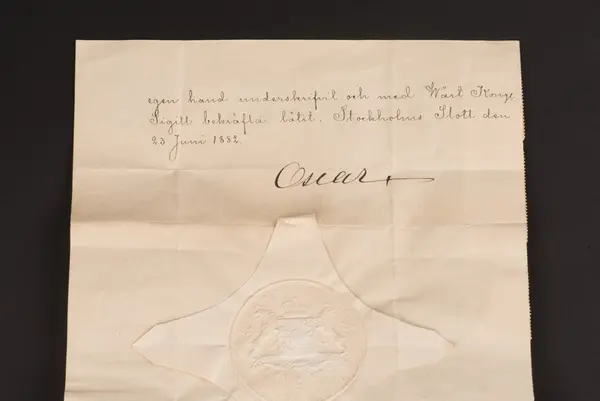 egen hand underskrifvit och med Wårt Kongl.
Sigill bekräfta låtit. Stockholms Slott den
23 Juni 1882.
Oscar